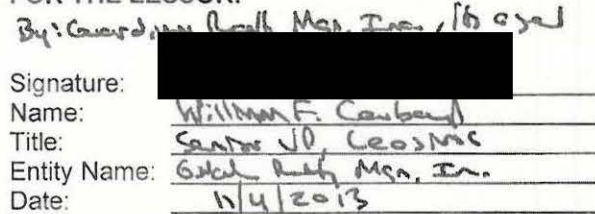 FOR THE LESSOR:
By: Guardian Realty Mgn, Inc., its agent
Signature:
Name: William F.
Title: Senior VP, Leasing
Entity Name: Realty Mgn, In.
Date: 11/4/2013